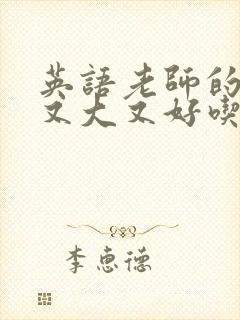 英語老師的
又大又好喫
李惠德